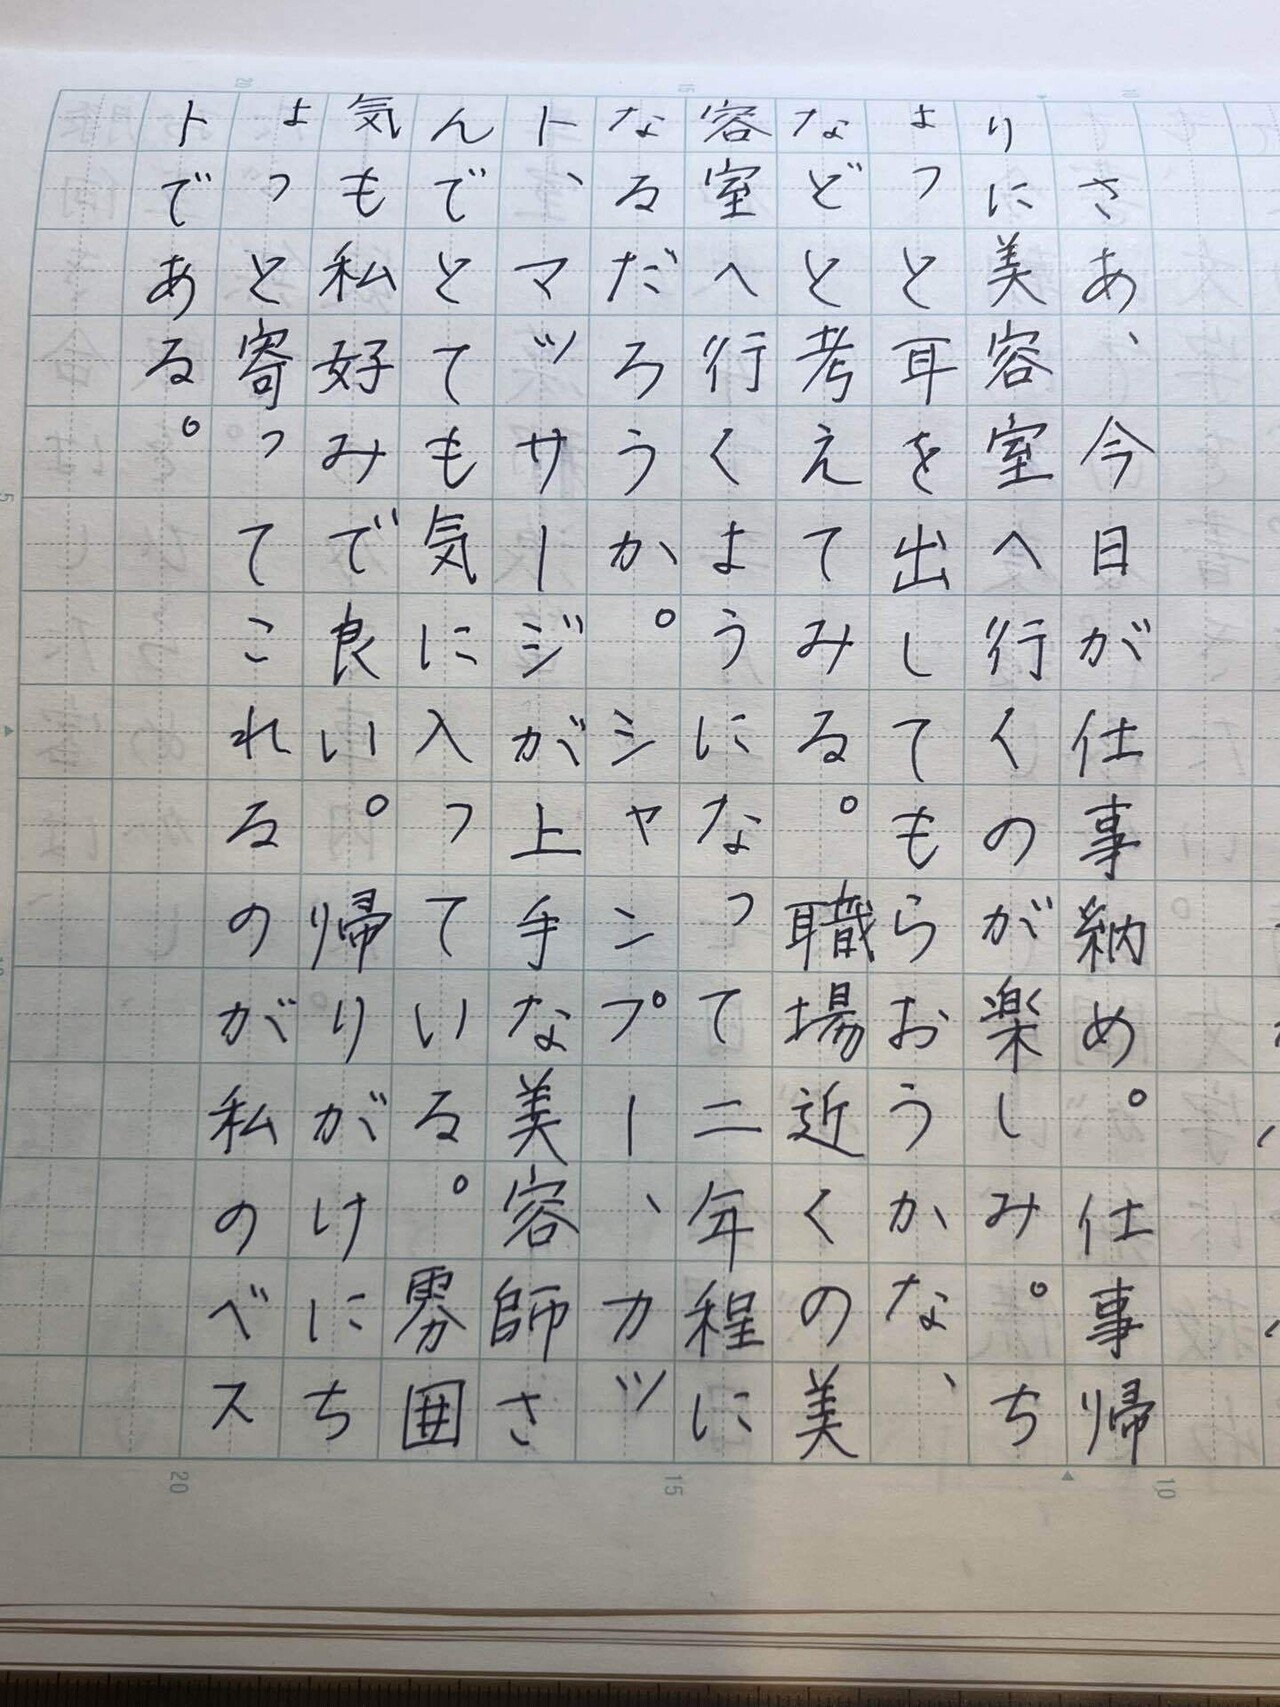 さあ、今日が仕事納め。仕事帰
りに美容室へ行くのが楽しみ。ち
ょっと耳を出してもらおうかな、
などと考えてみる。職場近くの美
容室へ行くようになって二年程に
なるだろうか。シャンプー、カッ
ト、マッサージが上手な美容師さ
んでとても気に入っている。雰囲
気も私好みで良い。帰りがけにち
ょっと寄ってこれるのが私のベス
トである。
5
10
15
20